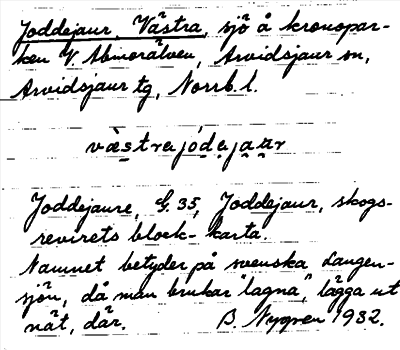 Joddejaur, Västra, sjö å kronopar-
ken V. Abmorälven, Arvidsjaur sn,
Arvidsjaur tg, Norrb. l.
vàstrajódejaur
Joddejaure, G. 35, Joddejaur, skogs-
revirets block-karta.
Namnet betyder på svenska Langen-
sjön, då man brukar "lagna", lägga ut
nät, där. B. Nygren 1932.